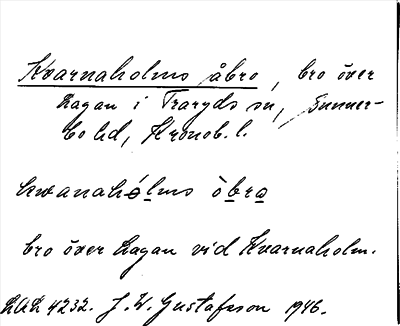 Kvarnaholms åbro, bro över
Lagan i Traryds sn, Sunner-
bo hd, Kronob. l.
kwanahólms òbra
bro över Lagan vid Kvarnaholm.
LAL 4232. J. W. Gustafsson 1946.